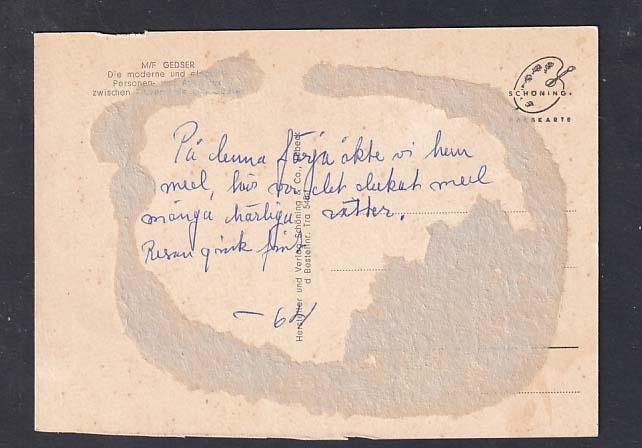 M/F GEDSER
Die moderne und
Personen- und
zwischen
SCHÖNING
På denna färja åkte vi hem
med, här var det dukat med
många härliga rätter.
Resan gick fint
-64
Hersteller und Verlag Schöning & Co., Lübeck
Bestellnr. Tra